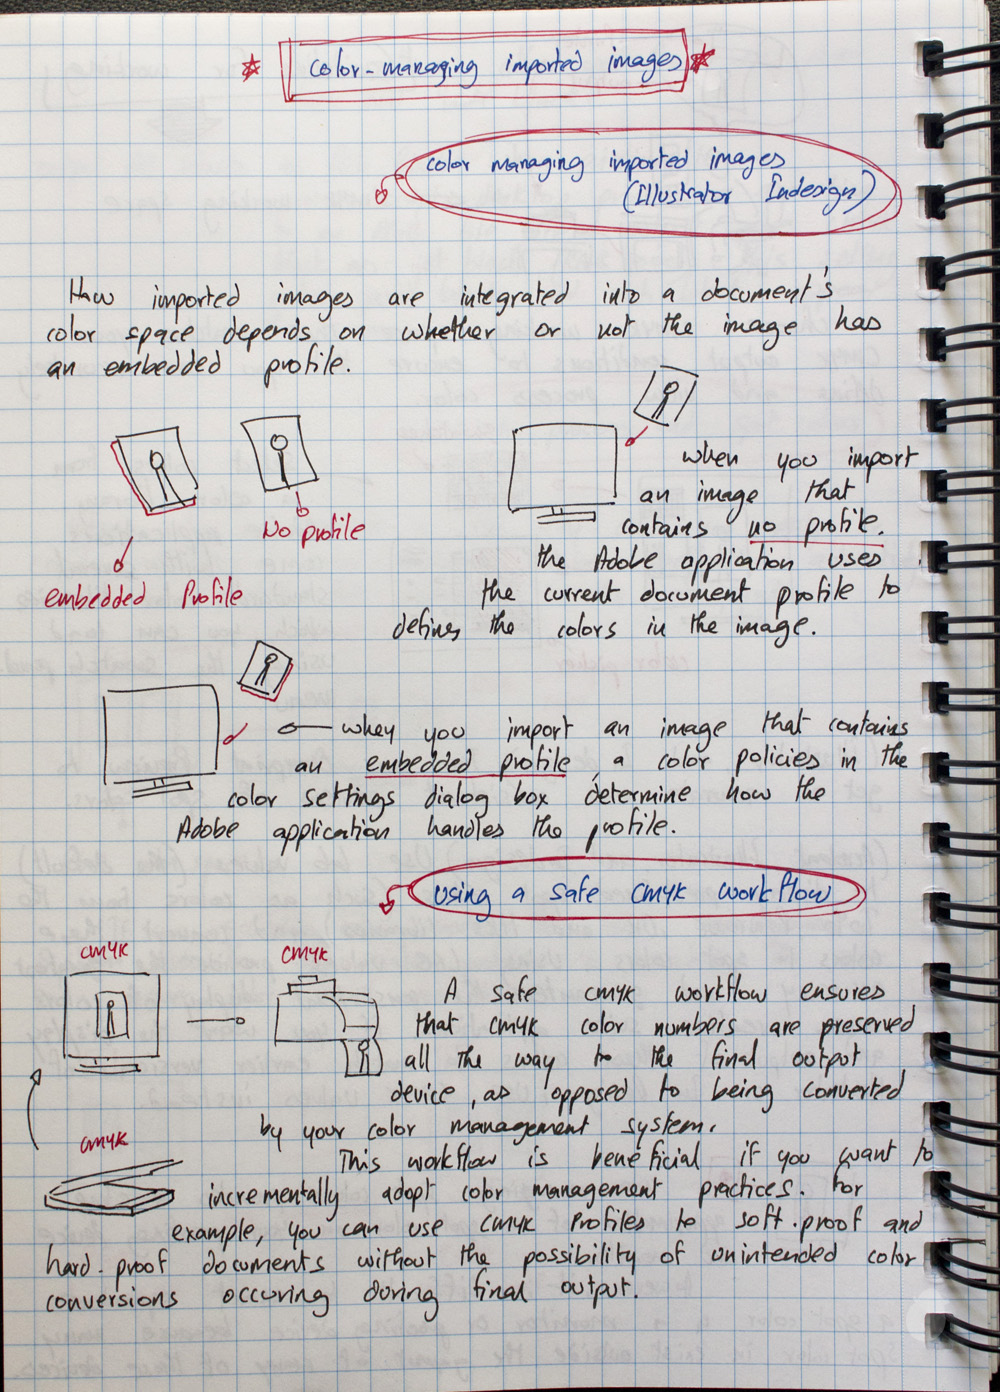 color-managing imported images
color managing imported images
(Illustrator Indesign)
How imported images are integrated into a document's
color space depends on whether or not the image has
an embedded profile.
No profile
embedded Profile
when you import
an image that
contains no profile.
the Adobe application uses
the current document profile to
defines the colors in the image.
when you import an image that contains
an embedded profile, a color policies in the
color settings dialog box determine how the
Adobe application handles the profile.
using a safe CMYK workflow
CMYK
CMYK
A safe CMYK workflow ensures
that CMYK color numbers are preserved
all the way to the final output
device, as opposed to being converted
by your color management system.
CMYK
This workflow is beneficial if you want to
incrementally adopt color management practices. For
example, you can use CMYK Profiles to soft.proof and
hard-proof documents without the possibility of unintended color
conversions occuring during final output.